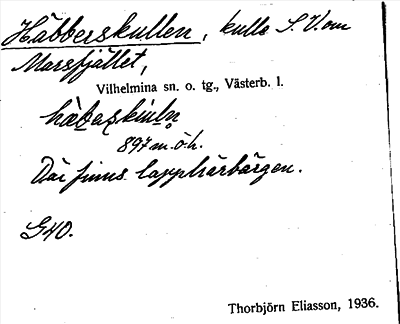 Häbberskullen, kulle S.V. om
Marsfjället,
Vilhelmina sn. o. tg., Västerb. l.
897 m.ö.h.
Där finns lapphärbärgen.
G40.
Thorbjörn Eliasson, 1936.